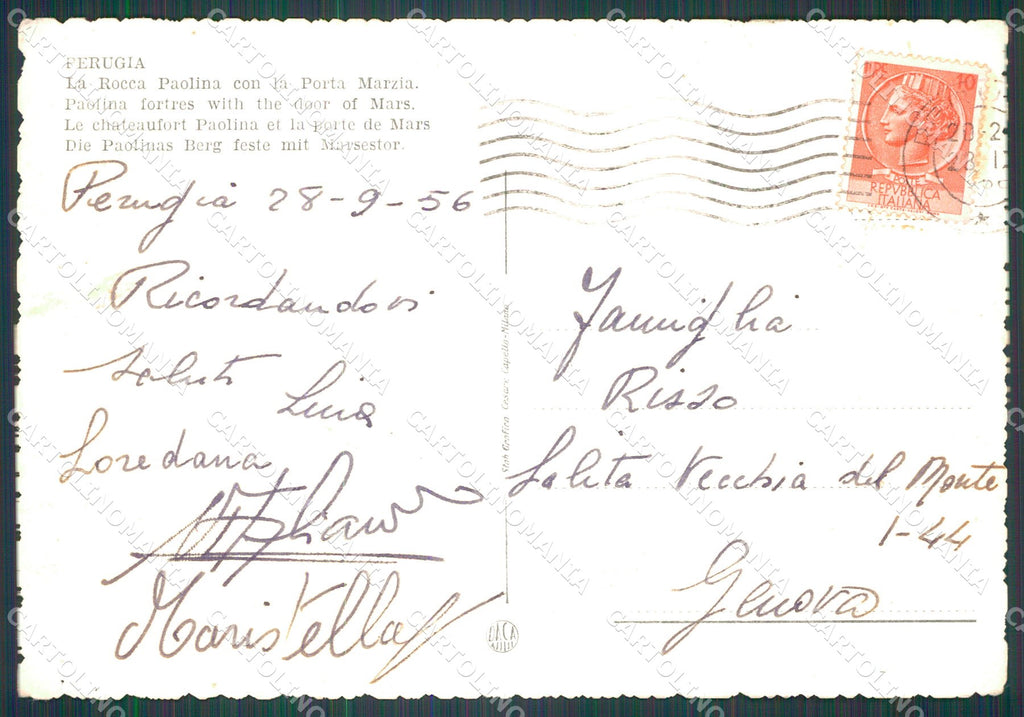 PERUGIA
La Rocca Paolina con la Porta Marzia.
Paolina fortres with the door of Mars.
Le chateaufort Paolina et la porte de Mars
Die Paolinas Berg feste mit Marsestor.
Perugia 28-9-56
Ricordandovi
saluti
Luisa
Loredana
Maristella
Stab. Grafico Cesare Capello-Milano
DACA
REPVBBLICA
ITALIANA
Famiglia
Risso
Salita Vecchia del Monte
1-44
Genova
CARTOLINOMANIA